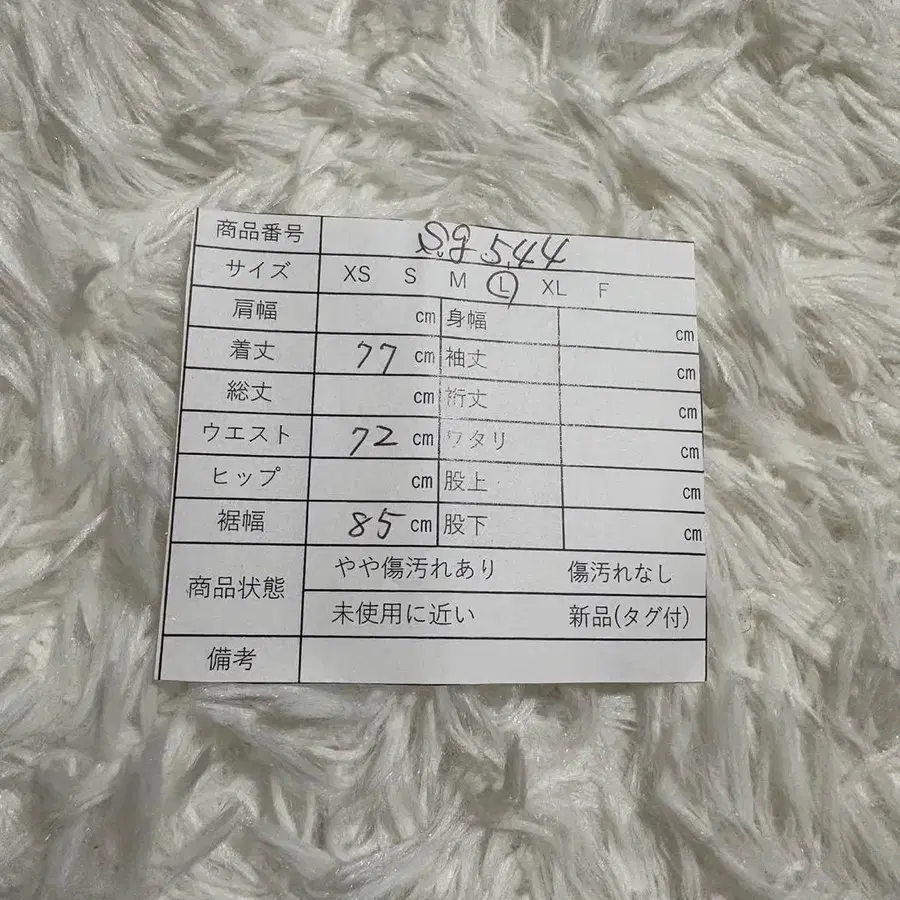 商品番号 S.g.544
サイズ XS S M L XL F
肩幅 cm 身幅 cm
着丈 77 cm 袖丈 cm
総丈 cm 裄丈 cm
ウエスト 72 cm ワタリ cm
ヒップ cm 股上 cm
裾幅 85 cm 股下 cm
商品状態 やや傷汚れあり 傷汚れなし
未使用に近い 新品(タグ付)
備考